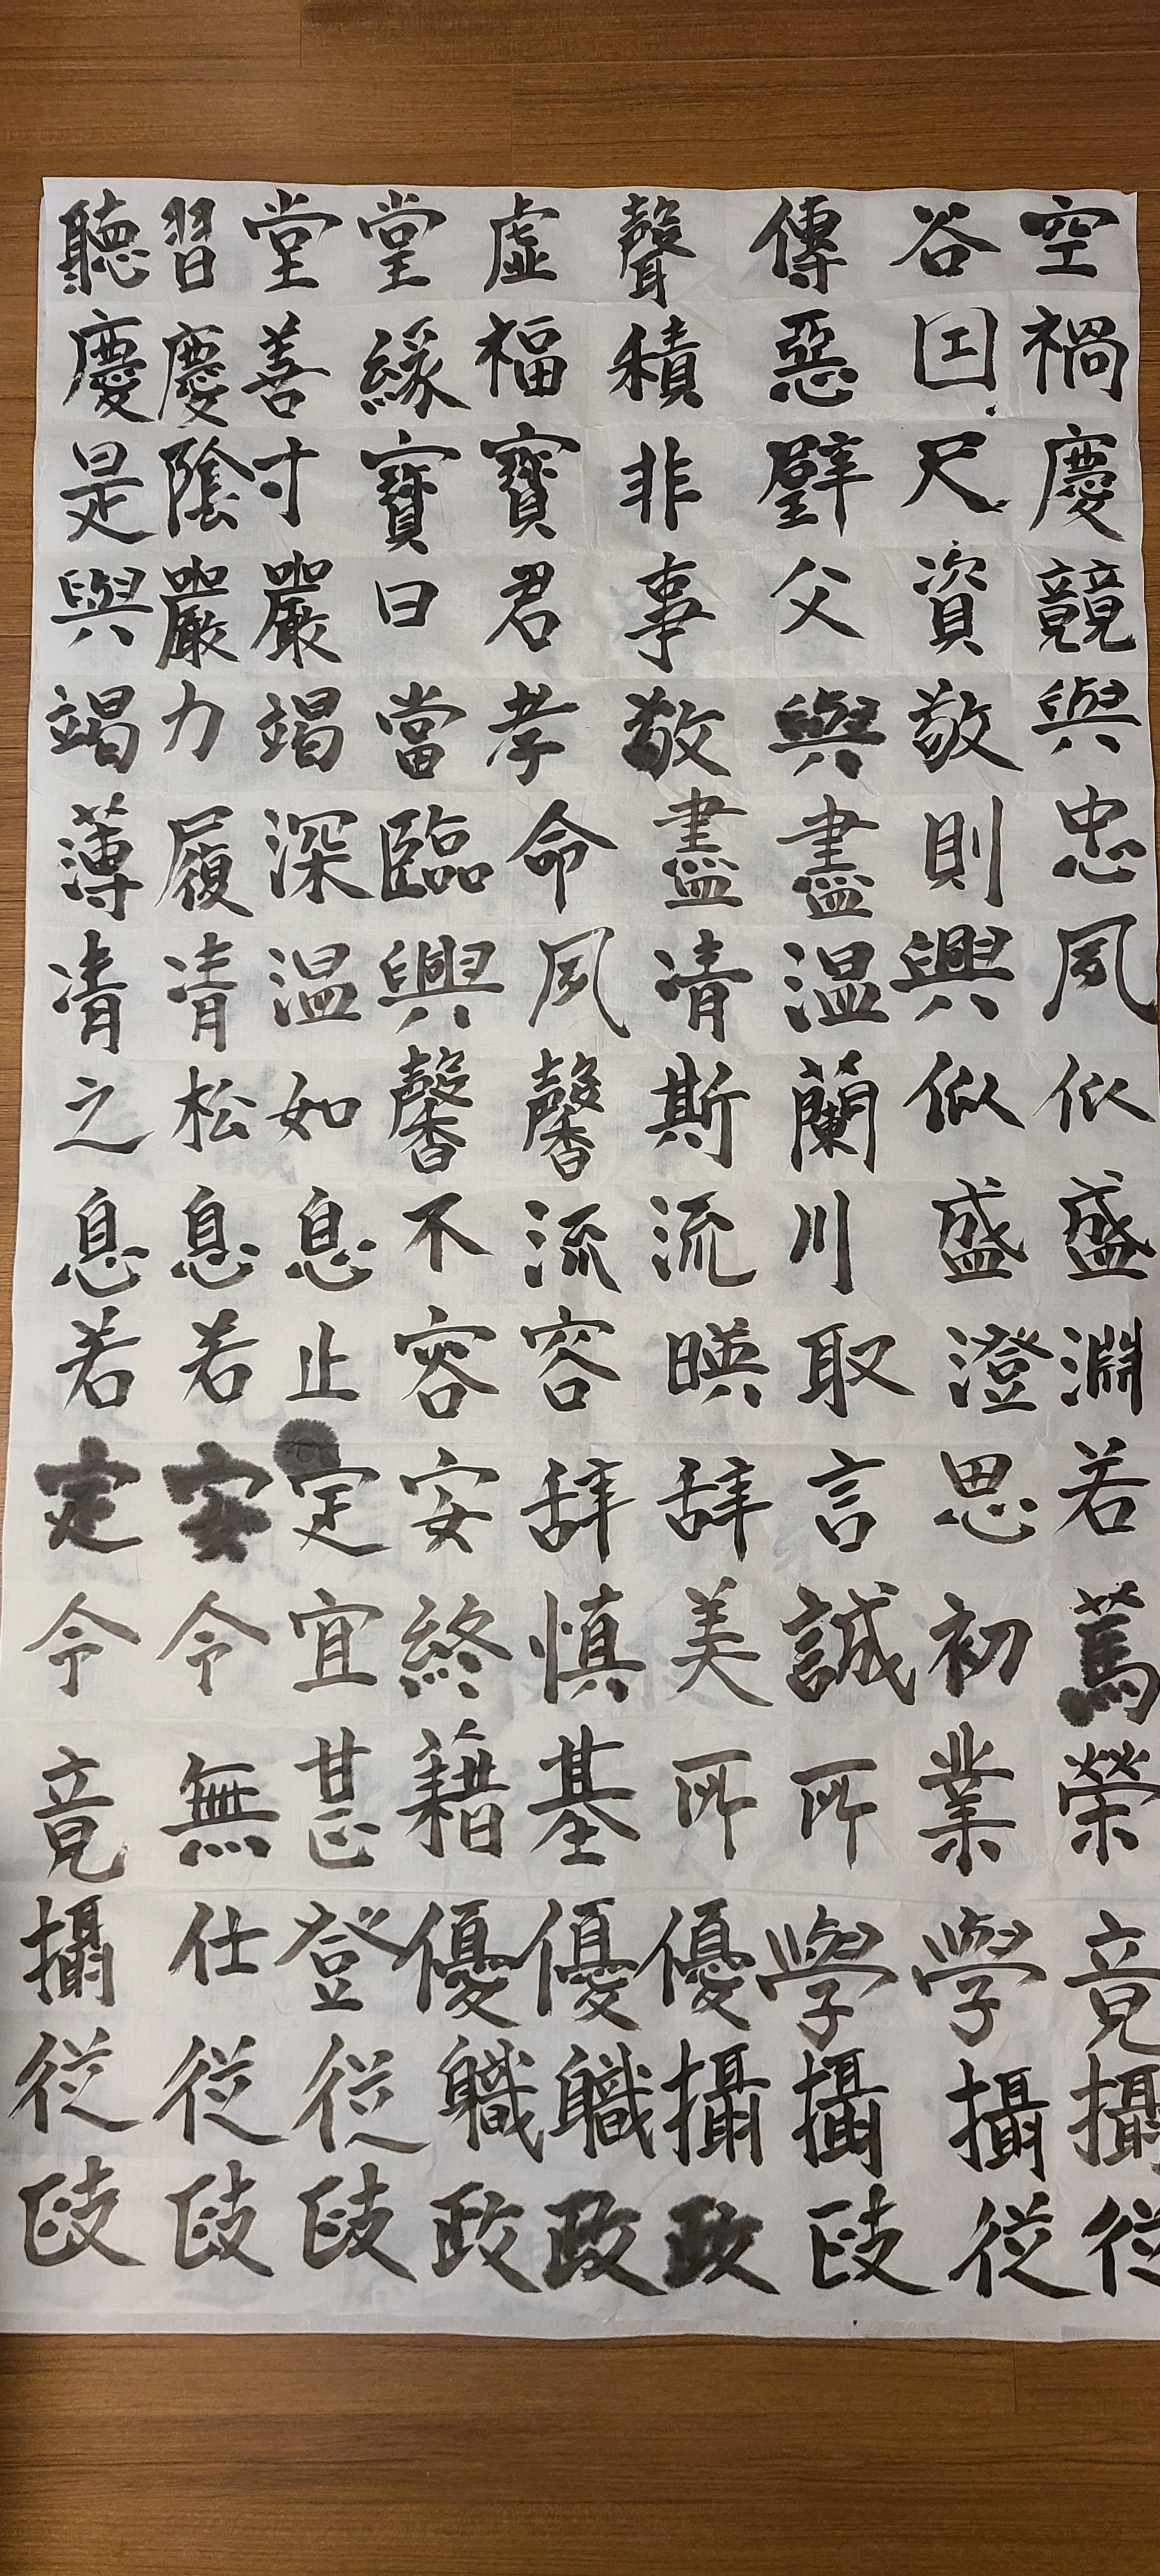 空谷傳聲虛堂堂習聽
禍囙惡積福緣善慶慶
慶尺璧非寶寶寸陰是
競資父事君曰嚴嚴與
與敬與敬孝當竭力竭
忠則盡盡命臨深履薄
夙興温凊夙興温凊凊
似似蘭斯馨馨如松之
盛盛川流流不息息息
淵澄取暎容容止若若
若思言辞辞安定安定
篤初誠美慎終宜令令
榮業所所基籍甚無竟
竟學學優優優登仕攝
攝攝攝攝職職従従従
従従政政政政政政政